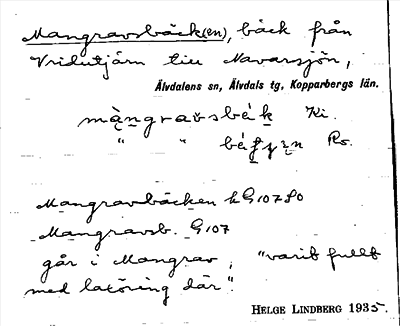 Mangravsbäck(en), bäck från
Vridutjärn till Navarsjön,
Älvdalens sn, Älvdals tg, Kopparbergs län.
Ki.
" " Ro.
Mangravbäcken k G10780
Mangravsb. G107
går i Mangrav, "varit fullt
med latöring där".
HELGE LINDBERG 1935.